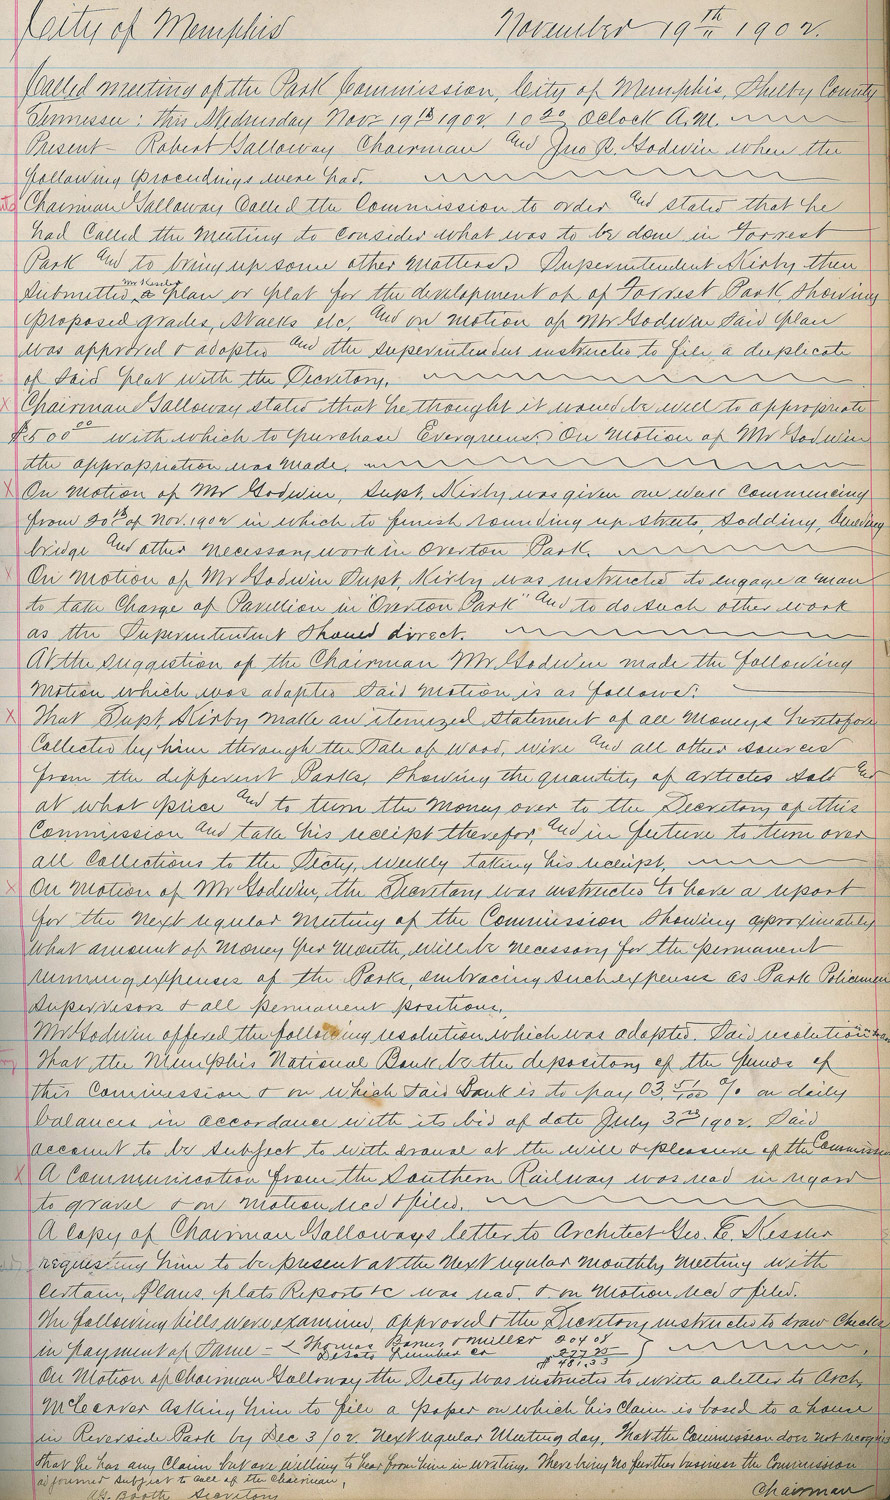 City of Memphis November 19th 1902.
Called meeting of the Park Commission, City of Memphis, Shelby County
Tennessee: this Wednesday Nov 19th 1902. 10 30 Oclock A.M.
Present - Robert Galloway Chairman and Jno R. Godwin when the
following proceedings were had.
Chairman Galloway Called the Commission to order and stated that he
had Called the Meeting to consider what was to be done in Forrest
Park and to bring up some other Matters. Superintendent Kirby then
Submitted Mr Kessler plan or plat for the development of of Forrest Park, Showing
proposed grades, Walks etc, and on motion of Mr Godwin Said plan
was approved & adopted and the Superintendent instructed to file a duplicate
of Said plat with the Secretary.
Chairman Galloway stated that he thought it would be well to appropriate
$500 00 with which to purchase Evergreens. On Motion of Mr Godwin
the appropriation was made.
On Motion of Mr Godwin, Supt. Kirby was given one week Commencing
from 20th of Nov. 1902 in which to finish rounding up streets, Sodding,
bridge and other necessary work in Overton Park.
On Motion of Mr Godwin Supt. Kirby was instructed to engage a man
to take Charge of Pavillion in "Overton Park" and to do such other work
as the Superintendent Should direct.
At the suggestion of the Chairman Mr Godwin made the following
Motion which was adopted Said Motion is as follows:
That Supt. Kirby make an itemized statement of all Moneys heretofore
Collected by him through the Sale of wood, wire and all other sources
from the different Parks. Showing the quantity of articles Sold and
at what price and to turn the Money over to the Secretary of this
Commission and take his receipt therefor, and in future to turn over
all Collections to the Secty, weekly taking his receipt.
On Motion of Mr Godwin, the Secretary was instructed to have a report
for the next regular Meeting of the Commission Showing approximately
what amount of Money per Month, will be necessary for the permanent
running expenses of the Parks, embracing such expenses as Park Policemen
Supervisors & all permanent positions.
Mr Godwin offered the following resolution which was adopted. Said resolution
That the Memphis National Bank be the depository of the funds of
this Commission & on which Said Bank is to pay 03. 51/100 % on daily
balances in accordance with its bid of date July 3rd 1902. Said
account to be Subject to withdrawal at the will & pleasure of the Commission
A Communication from the Southern Railway was read in regard
to gravel & on Motion recd & filed.
A Copy of Chairman Galloways letter to Architect Geo. E. Kessler
requesting him to be present at the next regular Monthly Meeting with
Certain, Plans, plats Reports &c was read. & on Motion recd & filed.
The following bills were examined, approved & the Secretary instructed to draw Checks
in payment of Same = Thomas Barnes & Miller 204 08
DeSoto Lumber Co 277 25
$ 481.33
On Motion of Chairman Galloway the Secty was instructed to write a letter to Arch,
McCarver asking him to file a paper on which his Claim is based to a house
in Riverside Park by Dec 3/02 Next regular Meeting day, That the Commission does not recognize
that he has any Claim but are willing to hear from him in writing. There being no further business the Commission
adjourned Subject to Call of the Chairman,
Booth Secretary Chairman